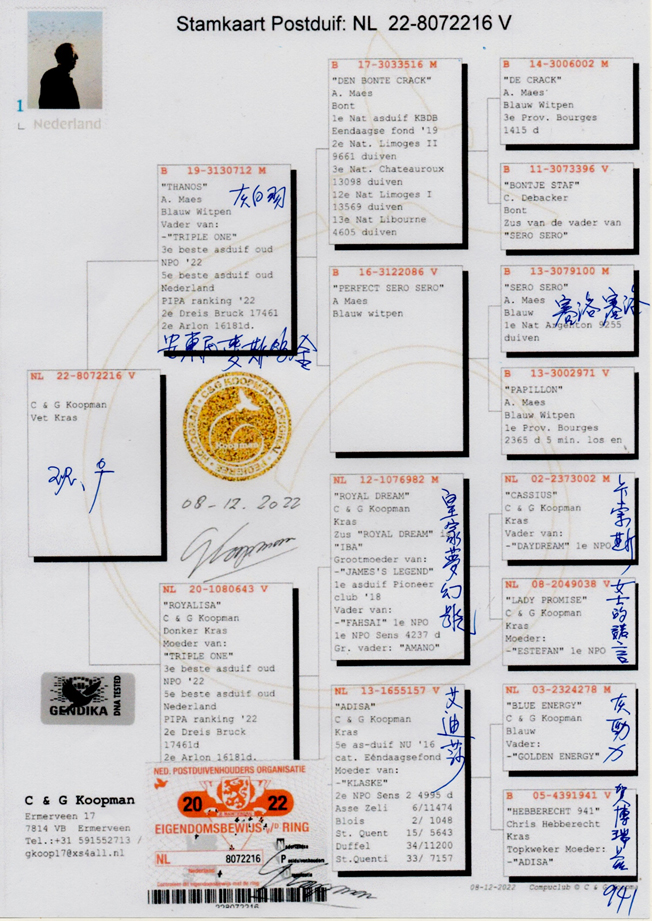 Stamkaart Postduif: NL 22-8072216 V
1
Nederland
NL 22-8072216 V
C & G Koopman
Vet Kras
B 19-3130712 M
"THANOS"
A. Maes
Blauw Witpen
Vader van:
-"TRIPLE ONE"
3e beste asduif oud
NPO '22
5e beste asduif oud
Nederland
PIPA ranking '22
2e Dreis Bruck 17461
2e Arlon 16181d.
灰白翔
NL 20-1080643 V
"ROYALISA"
C & G Koopman
Donker Kras
Moeder van:
"TRIPLE ONE"
3e beste asduif oud
NPO '22
5e beste asduif oud
Nederland
PIPA ranking '22
2e Dreis Bruck
17461d
2e Arlon 16181d.
B 17-3033516 M
"DEN BONTE CRACK"
A. Maes
Bont
1e Nat asduif KBDB
Eendaagse fond '19
2e Nat. Limoges II
9661 duiven
3e Nat. Chateauroux
13098 duiven
12e Nat Limoges I
13569 duiven
13e Nat Libourne
4605 duiven
B 16-3122086 V
"PERFECT SERO SERO"
A Maes
Blauw witpen
NL 12-1076982 M
"ROYAL DREAM"
C & G Koopman
Kras
Zus "ROYAL DREAM"
"IBA"
Grootmoeder van:
-"JAMES'S LEGEND"
1e asduif Pioneer
club '18
Vader van:
-"FAHSAI" 1e NPO
1e NPO Sens 4237 d
Gr. vader: "AMANO"
皇家夢幻號
NL 13-1655157 V
"ADISA"
C & G Koopman
Kras
5e as-duif NU '16
cat. Eéndaagsefond
Moeder van:
-"KLASKE"
2e NPO Sens 2 4995 d
Asse Zeli 6/11474
Blois 2/ 1048
St. Quent 15/ 5643
Duffel 34/11200
St.Quenti 33/ 7157
艾迪莎
B 14-3006002 M
"DE CRACK"
A. Maes
Blauw Witpen
3e Prov. Bourges
1415 d
B 11-3073396 V
"BONTJE STAF"
C. Debacker
Bont
Zus van de vader van
"SERO SERO"
B 13-3079100 M
"SERO SERO"
A. Maes
Blauw
1e Nat Argenton 9255
duiven
賽洛賽洛
B 13-3002971 V
"PAPILLON"
A. Maes
Blauw Witpen
1e Prov. Bourges
2365 d 5 min. los en
NL 02-2373002 M
"CASSIUS"
C & G Koopman
Kras
Vader van:
-"DAYDREAM" 1e NPO
卡索斯
NL 08-2049038 V
"LADY PROMISE"
C & G Koopman
Kras
Moeder:
-"ESTEFAN" 1e NPO
女士的諾言
NL 03-2324278 M
"BLUE ENERGY"
C & G Koopman
Blauw
Vader:
-"GOLDEN ENERGY"
灰動力
B 05-4391941 V
"HEBBERECHT 941"
Chris Hebberecht
Kras
Topkweker Moeder:
-"ADISA"
941
C&G KOOPMAN
Koopman
08-12.2022
GENDIKA
DNA TESTED
C & G Koopman
Ermerveen 17
7814 VB Ermerveen
Tel.:+31 591552713 /
gkoop17@xs4all.nl
NED. POSTDUIVENHOUDERS ORGANISATIE
20 22
EIGENDOMSBEWIJS p/d RING
NL 8072216
228072216
08-12-2022 Compuclub © C & G Koopman